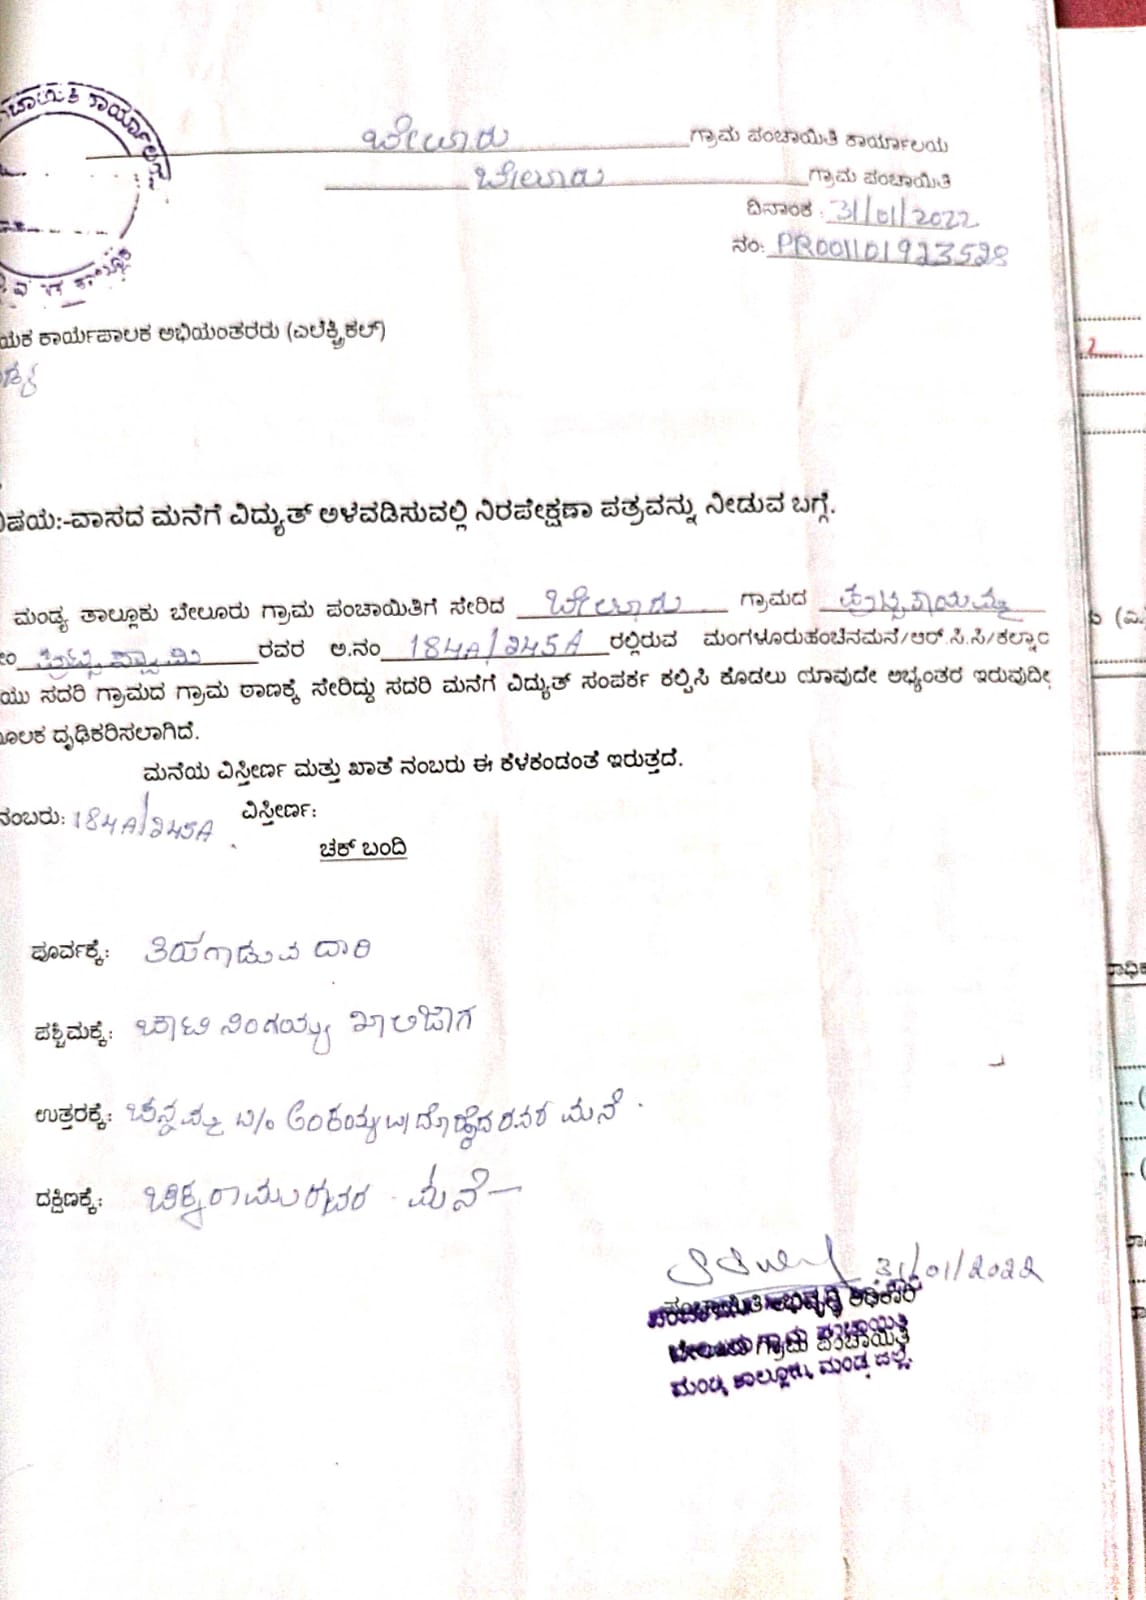 ಚಾಯಿತಿ ಕಾರ್ಯಾಲಯ
ಬೇಲೂರು ಗ್ರಾಮ ಪಂಚಾಯಿತಿ ಕಾರ್ಯಾಲಯ
ಬೇಲೂರು ಗ್ರಾಮ ಪಂಚಾಯಿತಿ
ದಿನಾಂಕ : 31/01/2022
ನಂ: PR001101923528
ಯಕ ಕಾರ್ಯಪಾಲಕ ಅಭಿಯಂತರರು (ಎಲೆಕ್ಟ್ರಿಕಲ್)
ವಿಷಯ:-ವಾಸದ ಮನೆಗೆ ವಿದ್ಯುತ್ ಅಳವಡಿಸುವಲ್ಲಿ ನಿರಪೇಕ್ಷಣಾ ಪತ್ರವನ್ನು ನೀಡುವ ಬಗ್ಗೆ.
ಮಂಡ್ಯ ತಾಲ್ಲೂಕು ಬೇಲೂರು ಗ್ರಾಮ ಪಂಚಾಯಿತಿಗೆ ಸೇರಿದ ಬೇಲೂರು ಗ್ರಾಮದ
ರವರ ಅ.ನಂ 184A/245A ರಲ್ಲಿರುವ ಮಂಗಳೂರುಹಂಚಿನಮನೆ/ಆರ್.ಸಿ.ಸಿ/ಕಲ್ನಾರ
ಯು ಸದರಿ ಗ್ರಾಮದ ಗ್ರಾಮ ಠಾಣಕ್ಕೆ ಸೇರಿದ್ದು ಸದರಿ ಮನೆಗೆ ವಿದ್ಯುತ್ ಸಂಪರ್ಕ ಕಲ್ಪಿಸಿ ಕೊಡಲು ಯಾವುದೇ ಅಭ್ಯಂತರ ಇರುವುದಿ
ಮೂಲಕ ದೃಢಿಕರಿಸಲಾಗಿದೆ.
ಮನೆಯ ವಿಸ್ತೀರ್ಣ ಮತ್ತು ಖಾತೆ ನಂಬರು ಈ ಕೆಳಕಂಡಂತೆ ಇರುತ್ತದೆ.
ನಂಬರು: 184A/245A ವಿಸ್ತೀರ್ಣ:
ಚಕ್ ಬಂದಿ
ಪೂರ್ವಕ್ಕೆ: ತಿರುಗಾಡುವ ದಾರಿ
ಪಶ್ಚಿಮಕ್ಕೆ: ನಿಂಗಯ್ಯ ಖಾಲಿಜಾಗ
ಉತ್ತರಕ್ಕೆ: ಚನ್ನಮ್ಮ ರವರ ಮನೆ
ದಕ್ಷಿಣಕ್ಕೆ: ಚಿಕ್ಕರಾಮುರವರ ಮನೆ
31/01/2022
ಪಂಚಾಯಿತಿ ಅಭಿವೃದ್ಧಿ ಅಧಿಕಾರಿ
ಬೇಲೂರು ಗ್ರಾಮ ಪಂಚಾಯಿತಿ
ಮಂಡ್ಯ ತಾಲ್ಲೂಕು, ಮಂಡ್ಯ ಜಿಲ್ಲೆ.